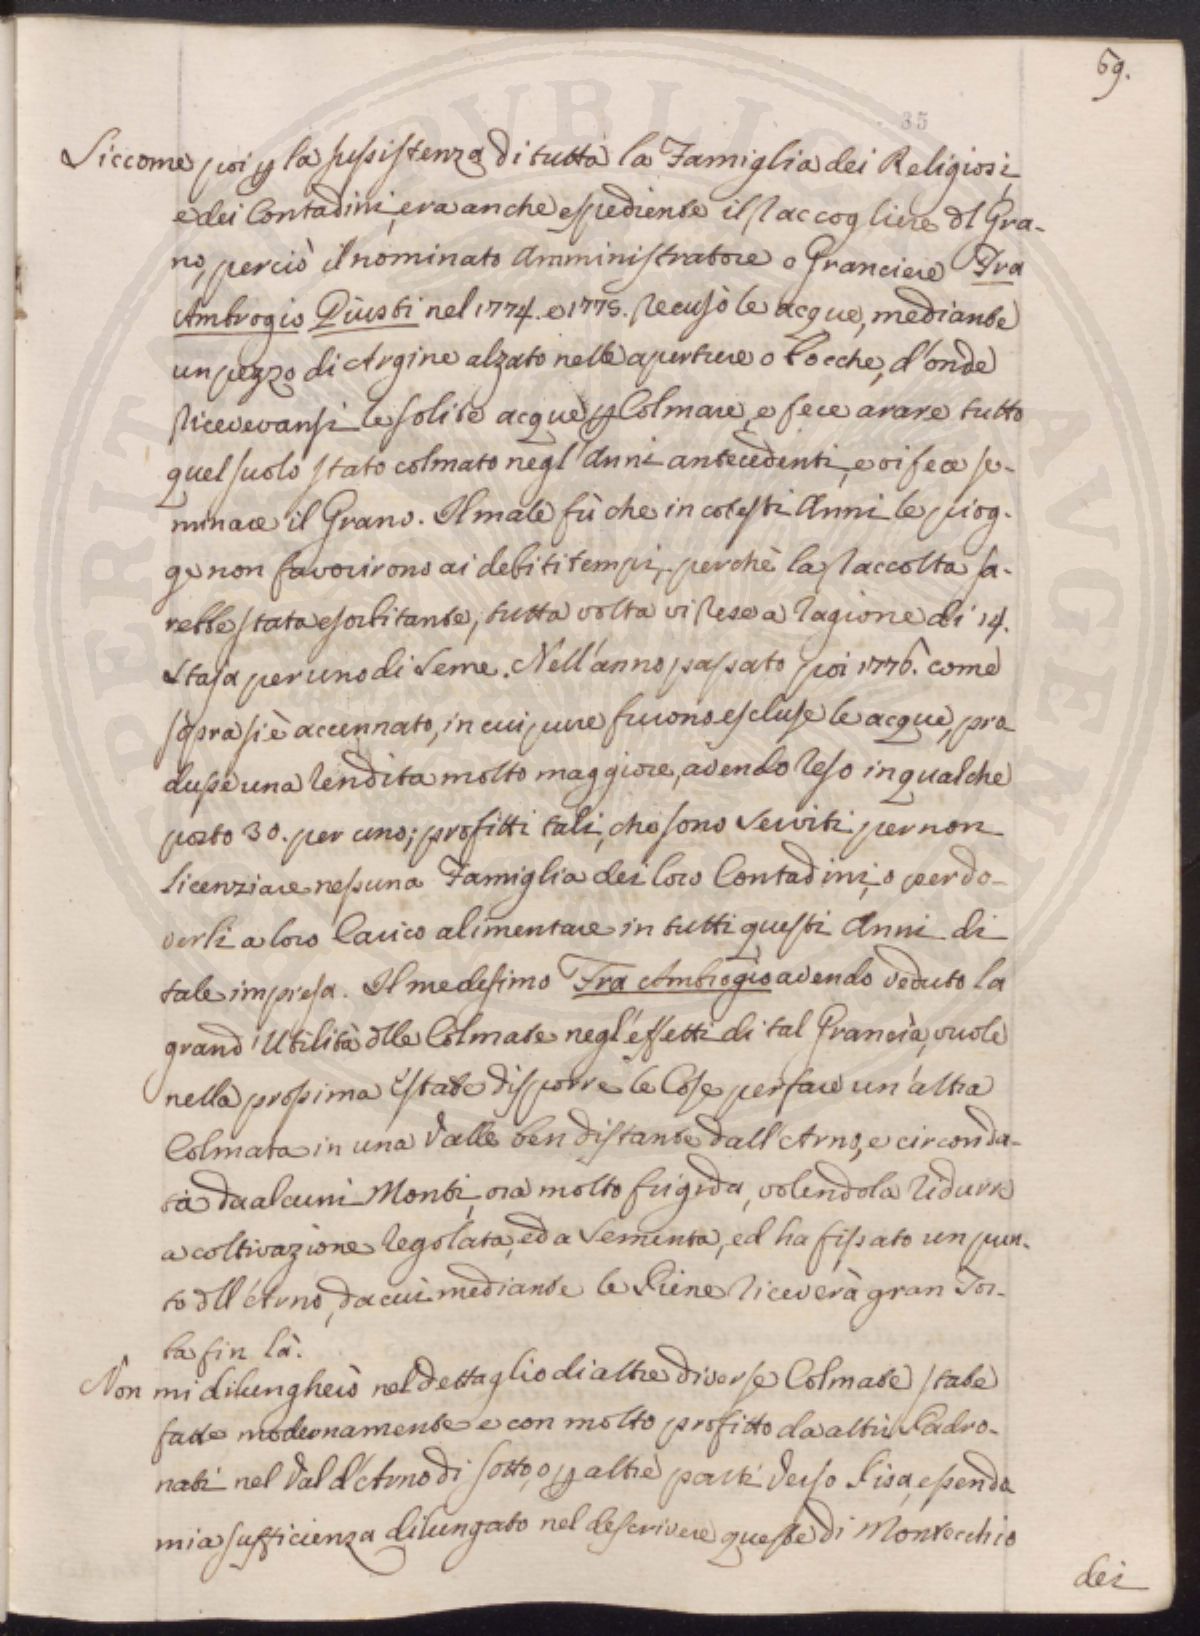 69.
35
Siccome poi p la sussistenza di tutta la Famiglia dei Religiosi,
e dei Contadini, era anche espediente il raccogliere dl Gra-
no, perciò il nominato Amministratore o Granciere Fra
Ambrogio Giusti nel 1774. e 1775. recusò le acque, mediante
un pezzo di Argine alzato nelle aperture o Bocche, d'onde
ricevevansi le solite acque p Colmare, e fece arare tutto
quel suolo stato colmato negl'Anni antecedenti, e vi fece se-
minare il Grano. Il male fù che in cotesti Anni le piog-
ge non favorirono ai debiti tempi, perchè la raccolta sa-
rebbe stata esorbitante, tutta volta vi rese a ragione di 14.
Staja per uno di Seme. Nell'anno passato poi 1776. come
sopra si è accennato, in cui pure furono escluse le acque, pro
dusse una rendita molto maggiore, avendo reso in qualche
posto 30. per uno; profitti tali, che sono serviti per non
licenziare nessuna Famiglia dei loro Contadini, o per do-
verli a loro Carico alimentare in tutti questi Anni di
tale impresa. Il medesimo Fra Ambrogio avendo veduto la
grand'Utilità dlle Colmate negl'effetti di tal Grancia, vuole
nella prossima Estate disporre le Cose per fare un'altra
Colmata in una Valle ben distante dall'Arno, e circonda-
ta da alcuni Monti, ora molto frigida, volendola ridurre
a coltivazione regolata, ed a Sementa, ed ha fissato un pun-
to dll'Arno, da cui mediante le Piene riceverà gran Tor-
ba fin là.
Non mi dilungherò nel dettaglio di altre diverse Colmate state
fatte modernamente e con molto profitto da altri Padro-
nati nel Val d'Arno di sotto, o p altre parti verso Pisa, essendo
mi a sufficienza dilungato nel descrivere queste di Montecchio
dei